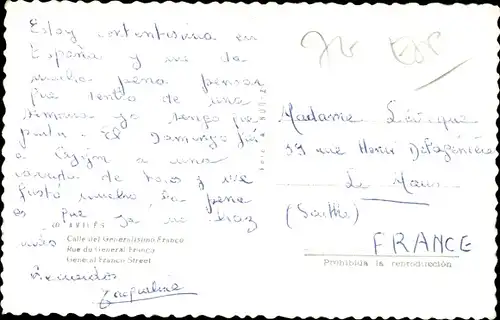 Estoy contentisima en
España y me da
mucha pena pensar
que dentro de una
semana ya tengo que
partir. El Domingo fui
a Gijón a una
corrida de toros y me
gustó mucho, la pena
es que ya no haz
más
10 AVILÉS
Calle del Generalísimo Franco
Rue du General Franco
General Franco Street
Recuerdos
Jacqueline
Madame Lévêque
37 rue Henri Delagénière
Le Mans
(Sarthe)
FRANCE
Prohibida la reproducción